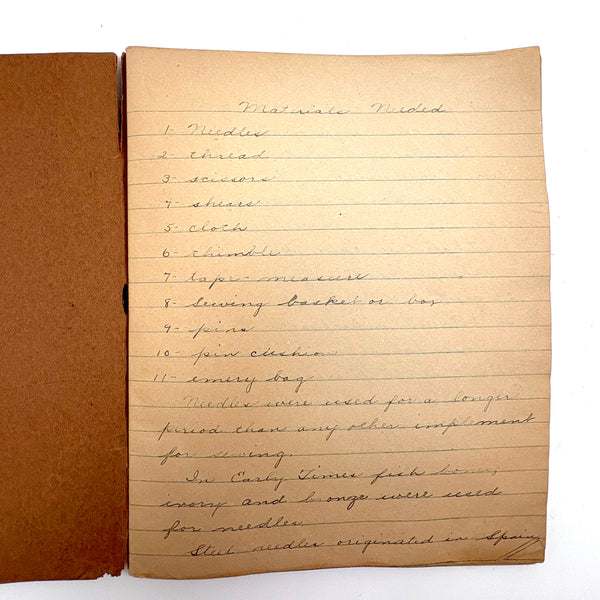 Materials Needed
1- Needles
2- thread
3- scissors
4- shears
5- cloth
6- thimble
7- tape-measure
8- Sewing basket or box
9- pins
10- pin cushion
11- emery bag
Needles were used for a longer
period than any other implement
for sewing.
In Early Times fish bone,
ivory and bronze were used
for needles.
Steel needles originated in Spain